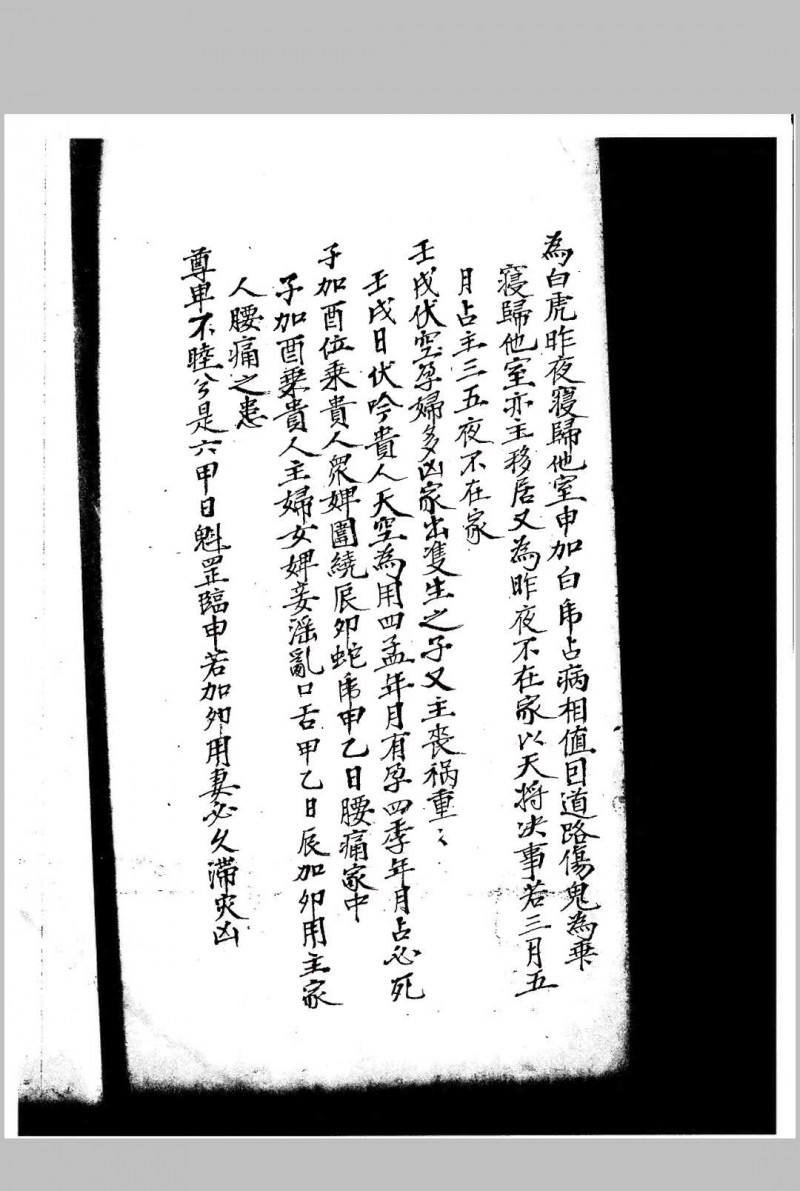 為白虎昨夜寢歸他室申加白虎占病相值因道路傷鬼為乘
寢歸他室亦主移居又為昨夜不在家以天將决事若三月五
月占主三五夜不在家
壬戌伏空孕婦多凶家出隻生之子又主喪禍重〻
壬戌日伏吟貴人天空為用四孟年月有孕四季年月占必死
子加酉位乘貴人衆婢圍繞辰卯蛇虎甲乙日腰痛家中
子加酉乘貴人主婦女婢妾淫亂口舌甲乙日辰加卯用主家
人腰痛之患
尊卑不睦兮是六甲日魁罡臨申若加卯用妻必久滯災凶